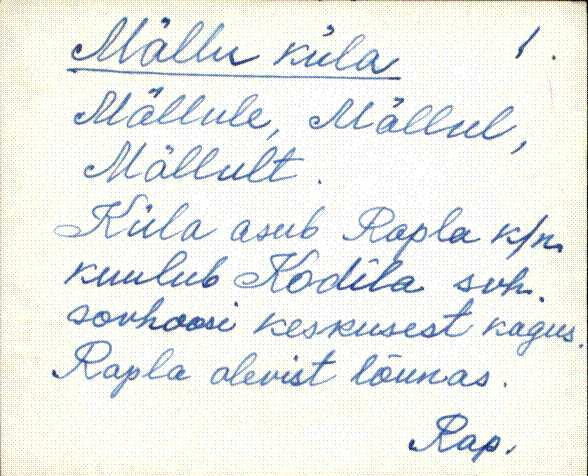 Mällu küla 1.
Mällule, Mällul,
Mällult.
Küla asub Rapla k/n.
kuulub Kodila svh.
sovhoosi keskusest kagus.
Rapla alevist lõunas.
Rap.